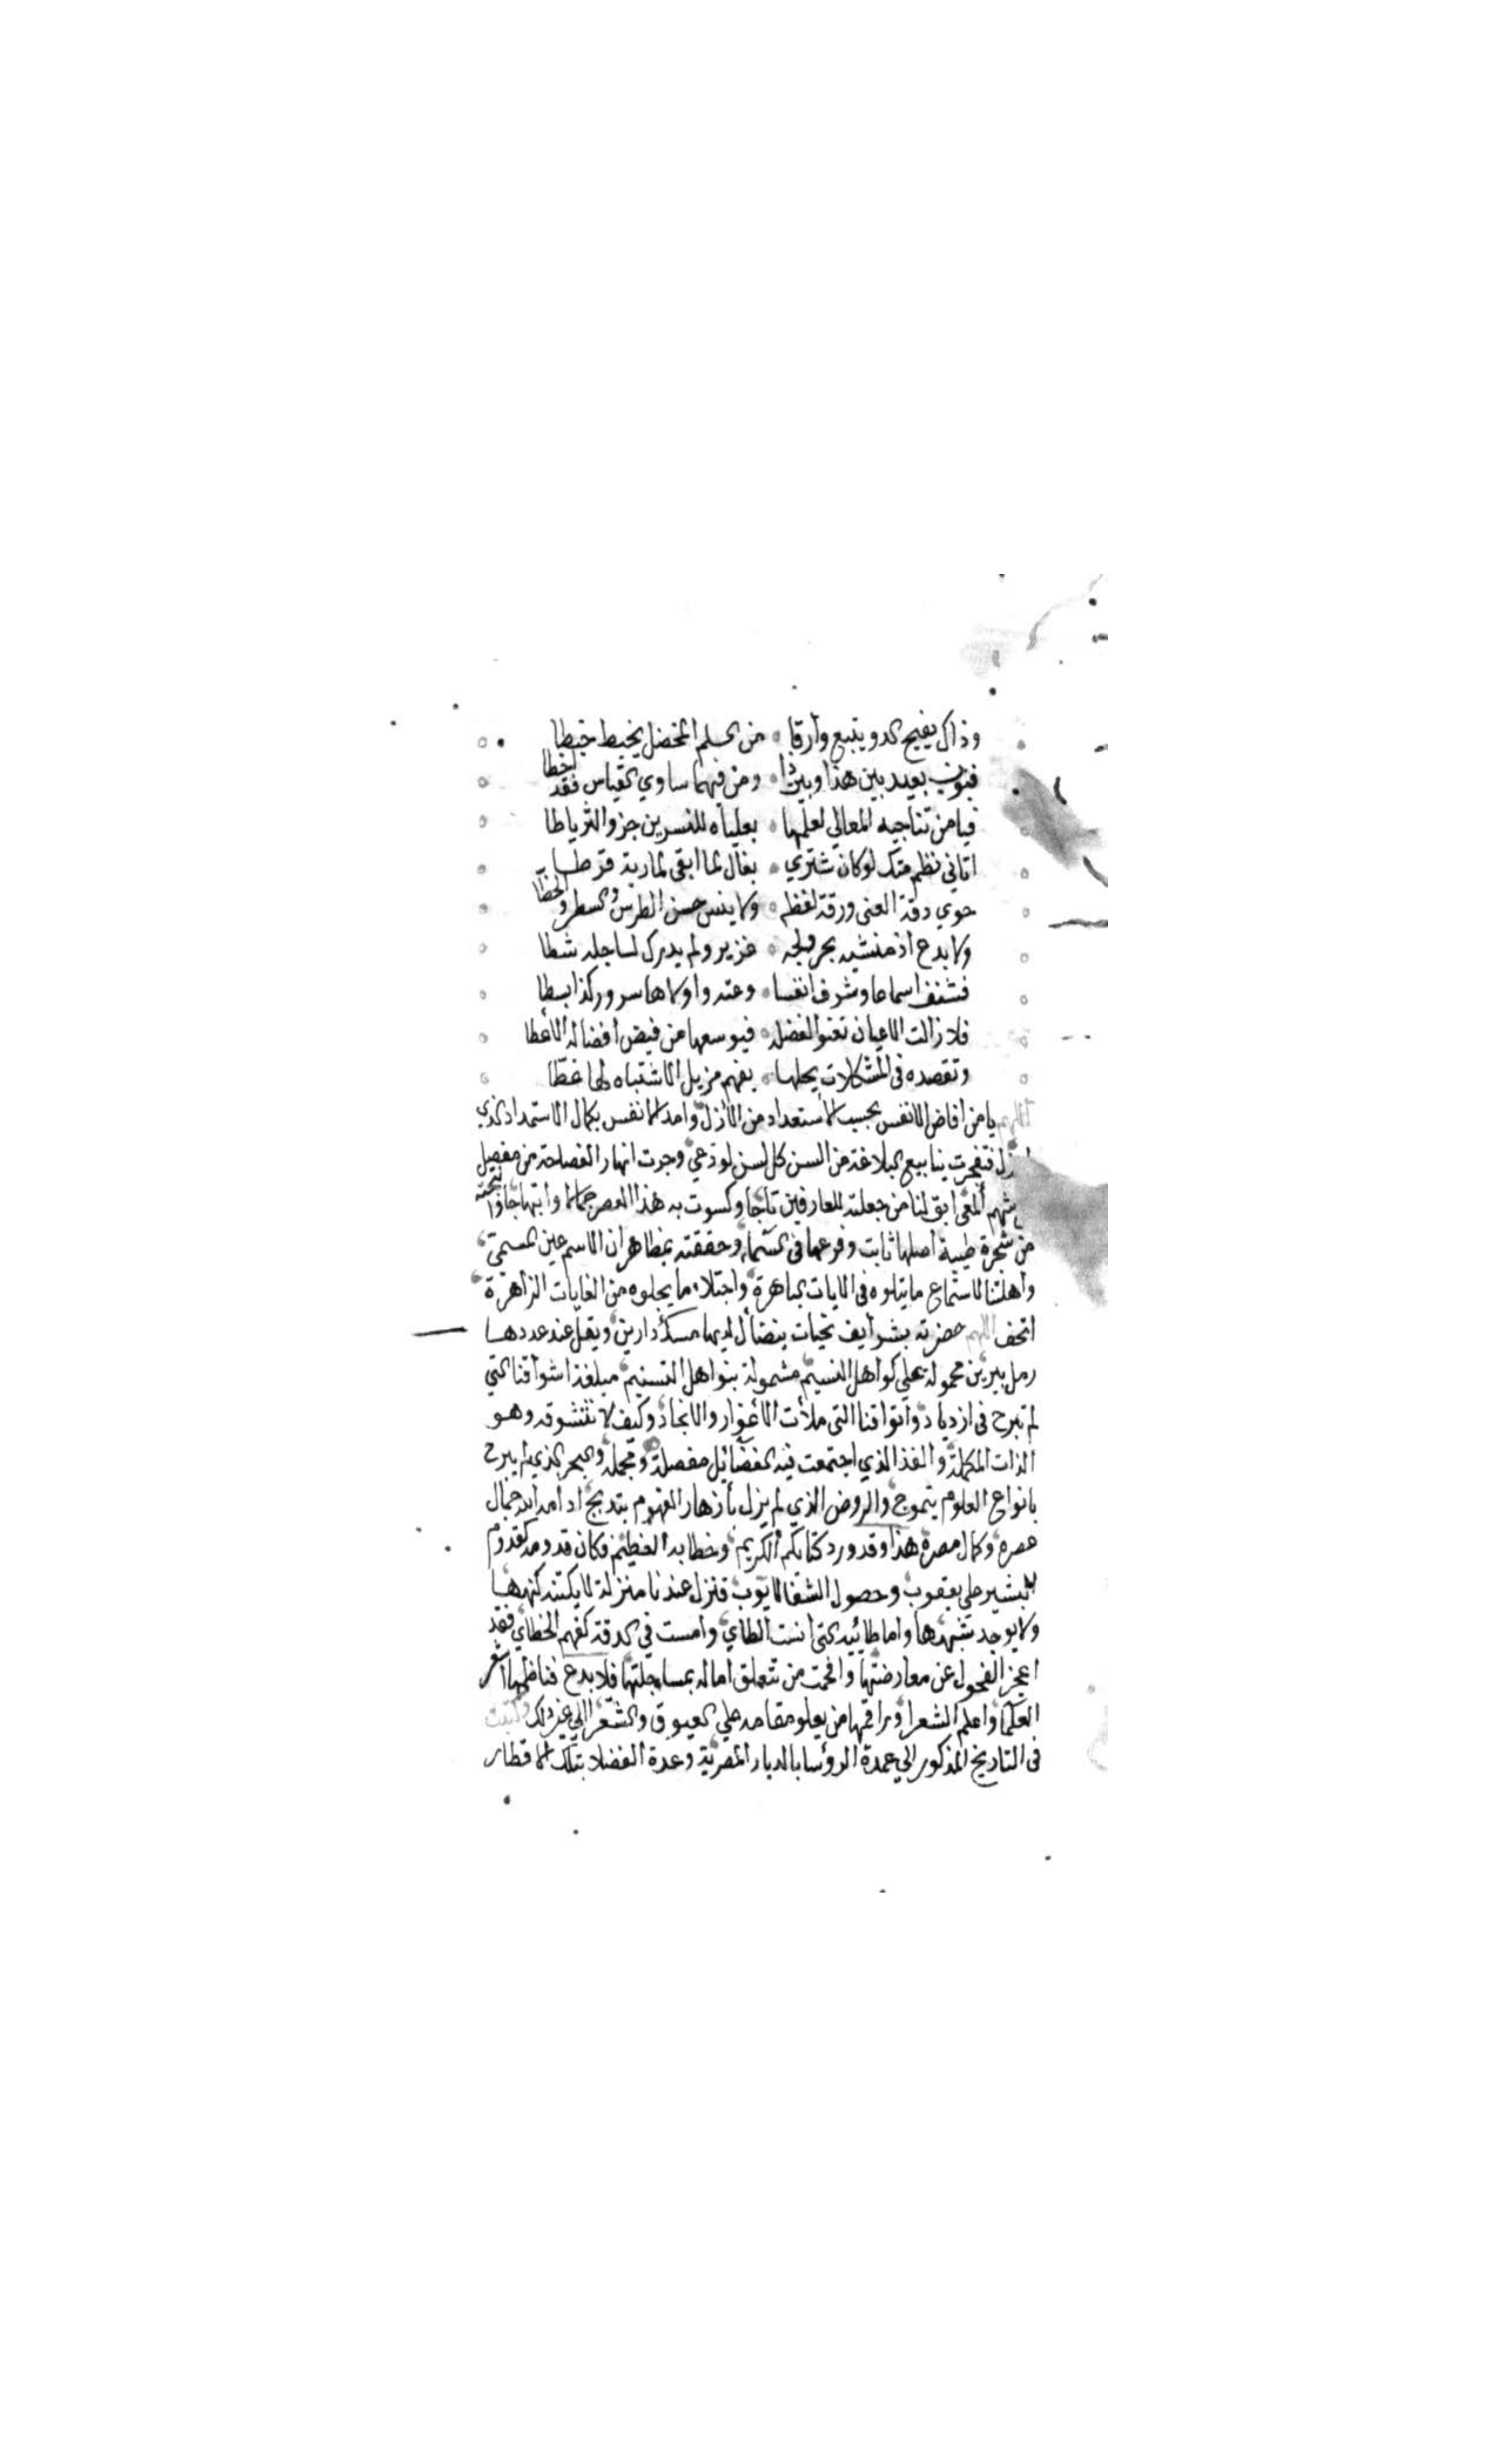 وذاك يفيح الدو يتبع وارقا ٠ من العلم المخضل يخبط خبطا
فبون بعيد بين هذا وبين ذا ٠ ومن فيهما ساوي القياس فقد اخطا
فيا من تناجيه المعالي لعلمها ٠ بعلياه للنسرين جز والثرياطا
اتاني نظم منك لو كان شتري ٠ بغال لما ابقى لمارية قرطا
حوي دقة المعنى ورقة لفظه ٠ ولا ينس حسن الطرس والسطر والخطا
ولا بدع اذ منشيه بحر ولجه ٠ غزير ولم يدرك لساجله شطا
فشنف اسماعا وشرف انفسا ٠ وعنه واولاها سرور كذا بسطا
فلا زالت الاعيان تعنو لفضله ٠ فيوسعها من فيض افضاله الاعطا
وتقصده في المشكلات يحلها ٠ بفهم مزيل الاشتباه لها غطا
اللهم يا من افاض الانفس بحسب الاستعداد من الازل وامد الانفس بكمال الاستمداد الذي
لم يزل فتفجرت ينابيع البلاغة من السن كل لسن لوذعي وجرت انهار الفصاحة من مفصل
شهم المعي ابق لنا من جعلته للعارفين تاجا وكسوت به هذا العصر جمالا وابتهاجا وانتجته
من شجرة طيبة اصلها ثابت وفرعها في السما وحققته بمظاهر ان الاسم عين المسمى
واهلتنا لاستماع ما يتلوه في الايات الباهرة واجتلاء ما يجلوه من الغايات الزاهرة
اتحف اللهم حضرته بشرايف تحيات يتضأل لديها مسك دارين ويقل عند عددها
رمل يبرين محمولة علي كواهل النسيم مشمولة بنواهل التسنيم مبلغة اشواقنا التي
لم تبرح في ازدياد واتواقنا التي ملأت الاغوار والانجاد وكيف لا نتشوقه وهو
الذات المكملة والفذ الذي اجتمعت فيه الفضائل مفصلة ومجملة والبحر الذي لم يبرح
بانواع العلوم يتموج والروض الذي لم يزل بأزهار الفهوم يتدبج ادام الله جمال
عصره وكمال مصره هذا وقد ورد كتابكم الكريم وخطابه الفطيم فكان قدومه كقدوم
البشير علي يعقوب وحصول الشفا لايوب فنزل عندنا منزلة لا يكتنه كنهها
ولا يوجد شبهها واما طائيه التي انست الطاي وامست في الدقة كفهم الخطاي فقد
اعجز الفحول عن معارضتها وافحمت من تتعلق اماله بمساجلتها فلا بدع فناظمها اشعر
العلما واعلم الشعرا وراقمها من يعلو مقامه علي العيوق والشعرا الي غير ذلك وكتبت
في التاريخ المذكور الي عمدة الرؤسا بالديار المصرية وعدة الفضلا بتلك الاقطار